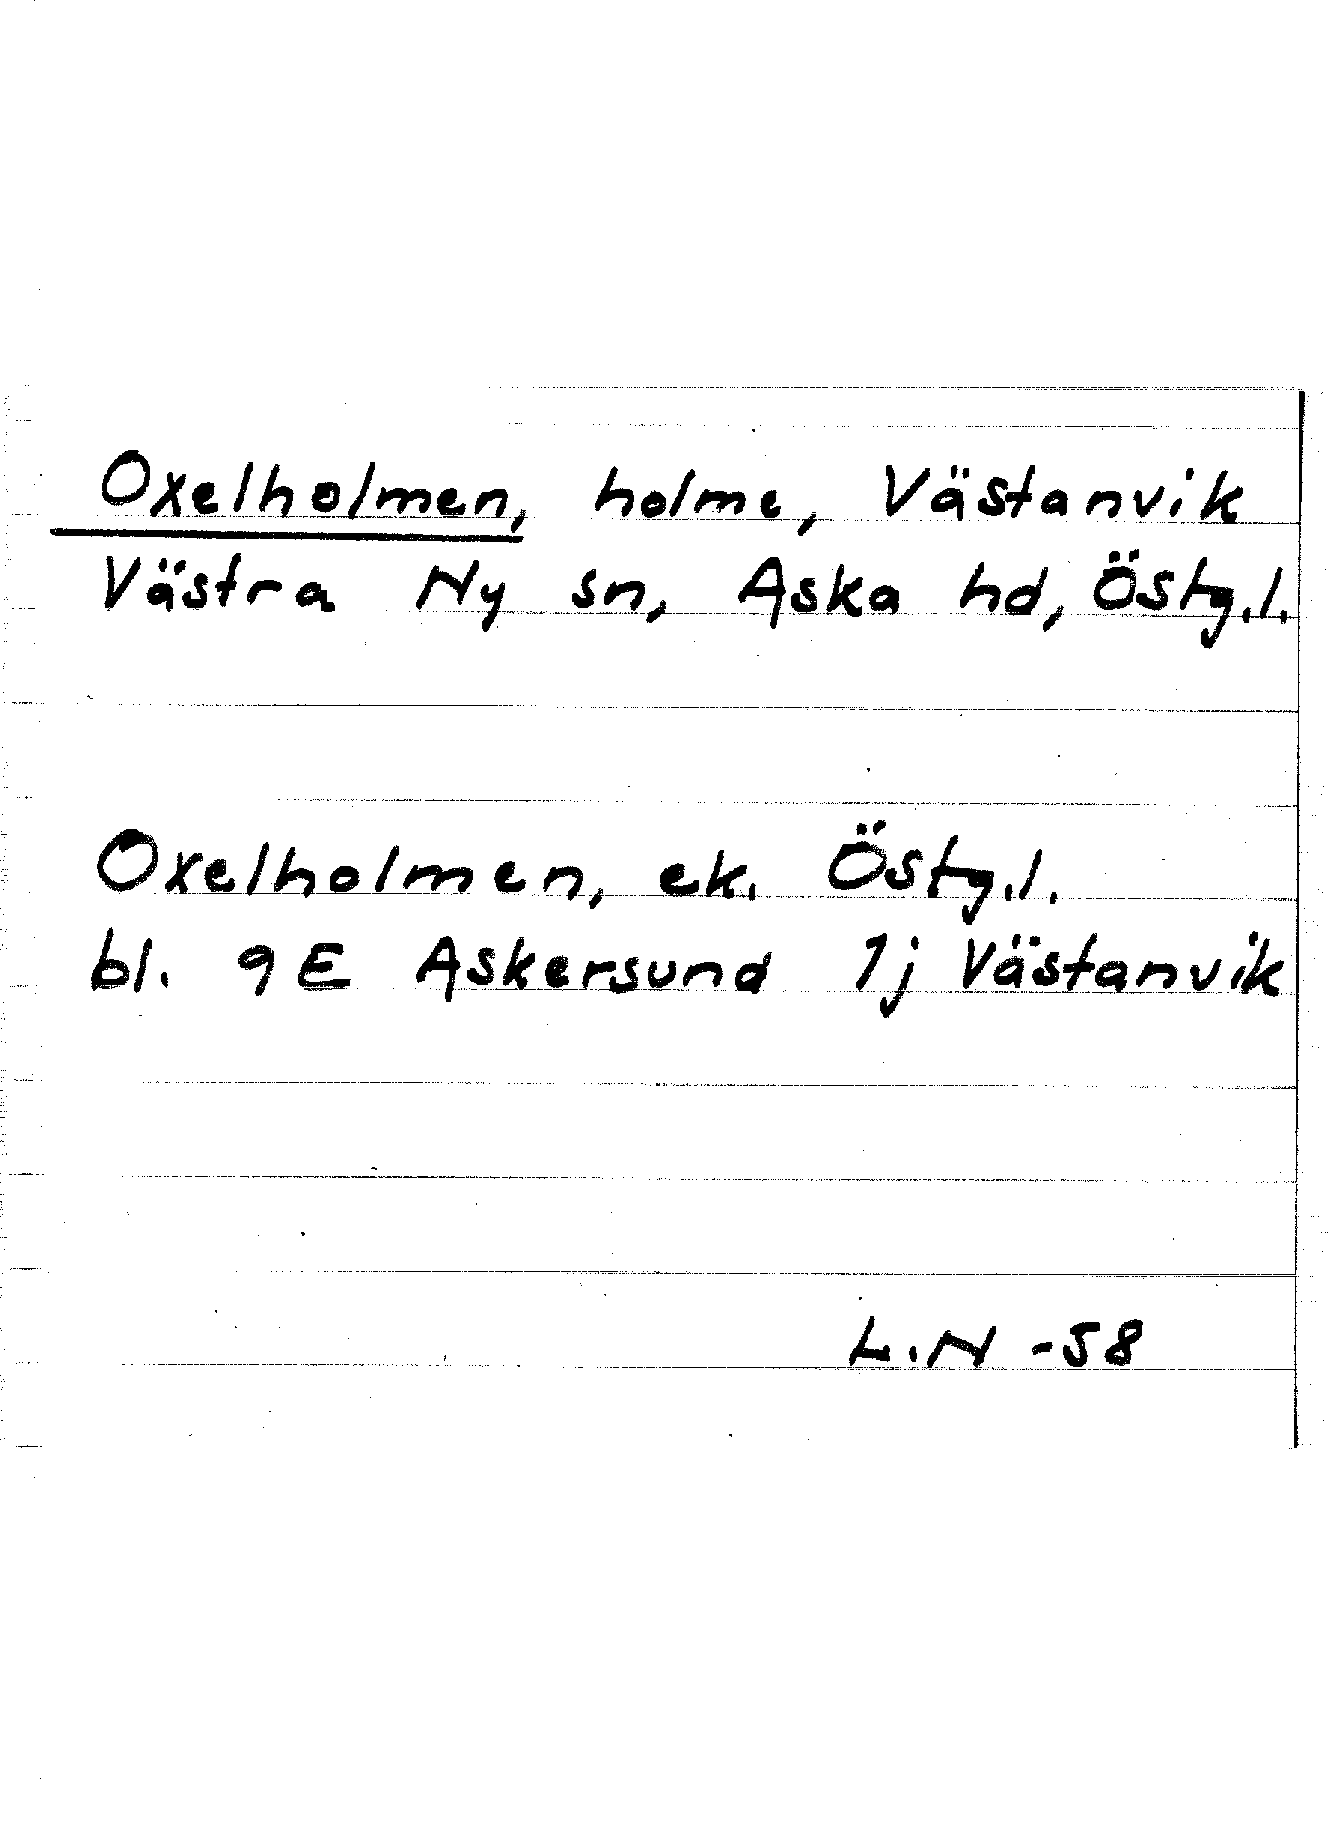 Oxelholmen, holme, Västanvik
Västra Ny sn, Aska hd, Östg.l.
Oxelholmen, ek. Östg.l.
bl. 9E Askersund 1j Västanvik
L.N -58